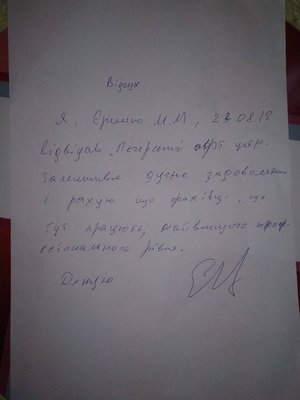 Відгук
Я, Єрмико М М, 23.08.19
відвідав "Печерські арт цтр.
Залишився дуже задоволений
і рахую що фахівці, що
тут працюють, найвищого проф-
сетонального рівня.
Дякую.